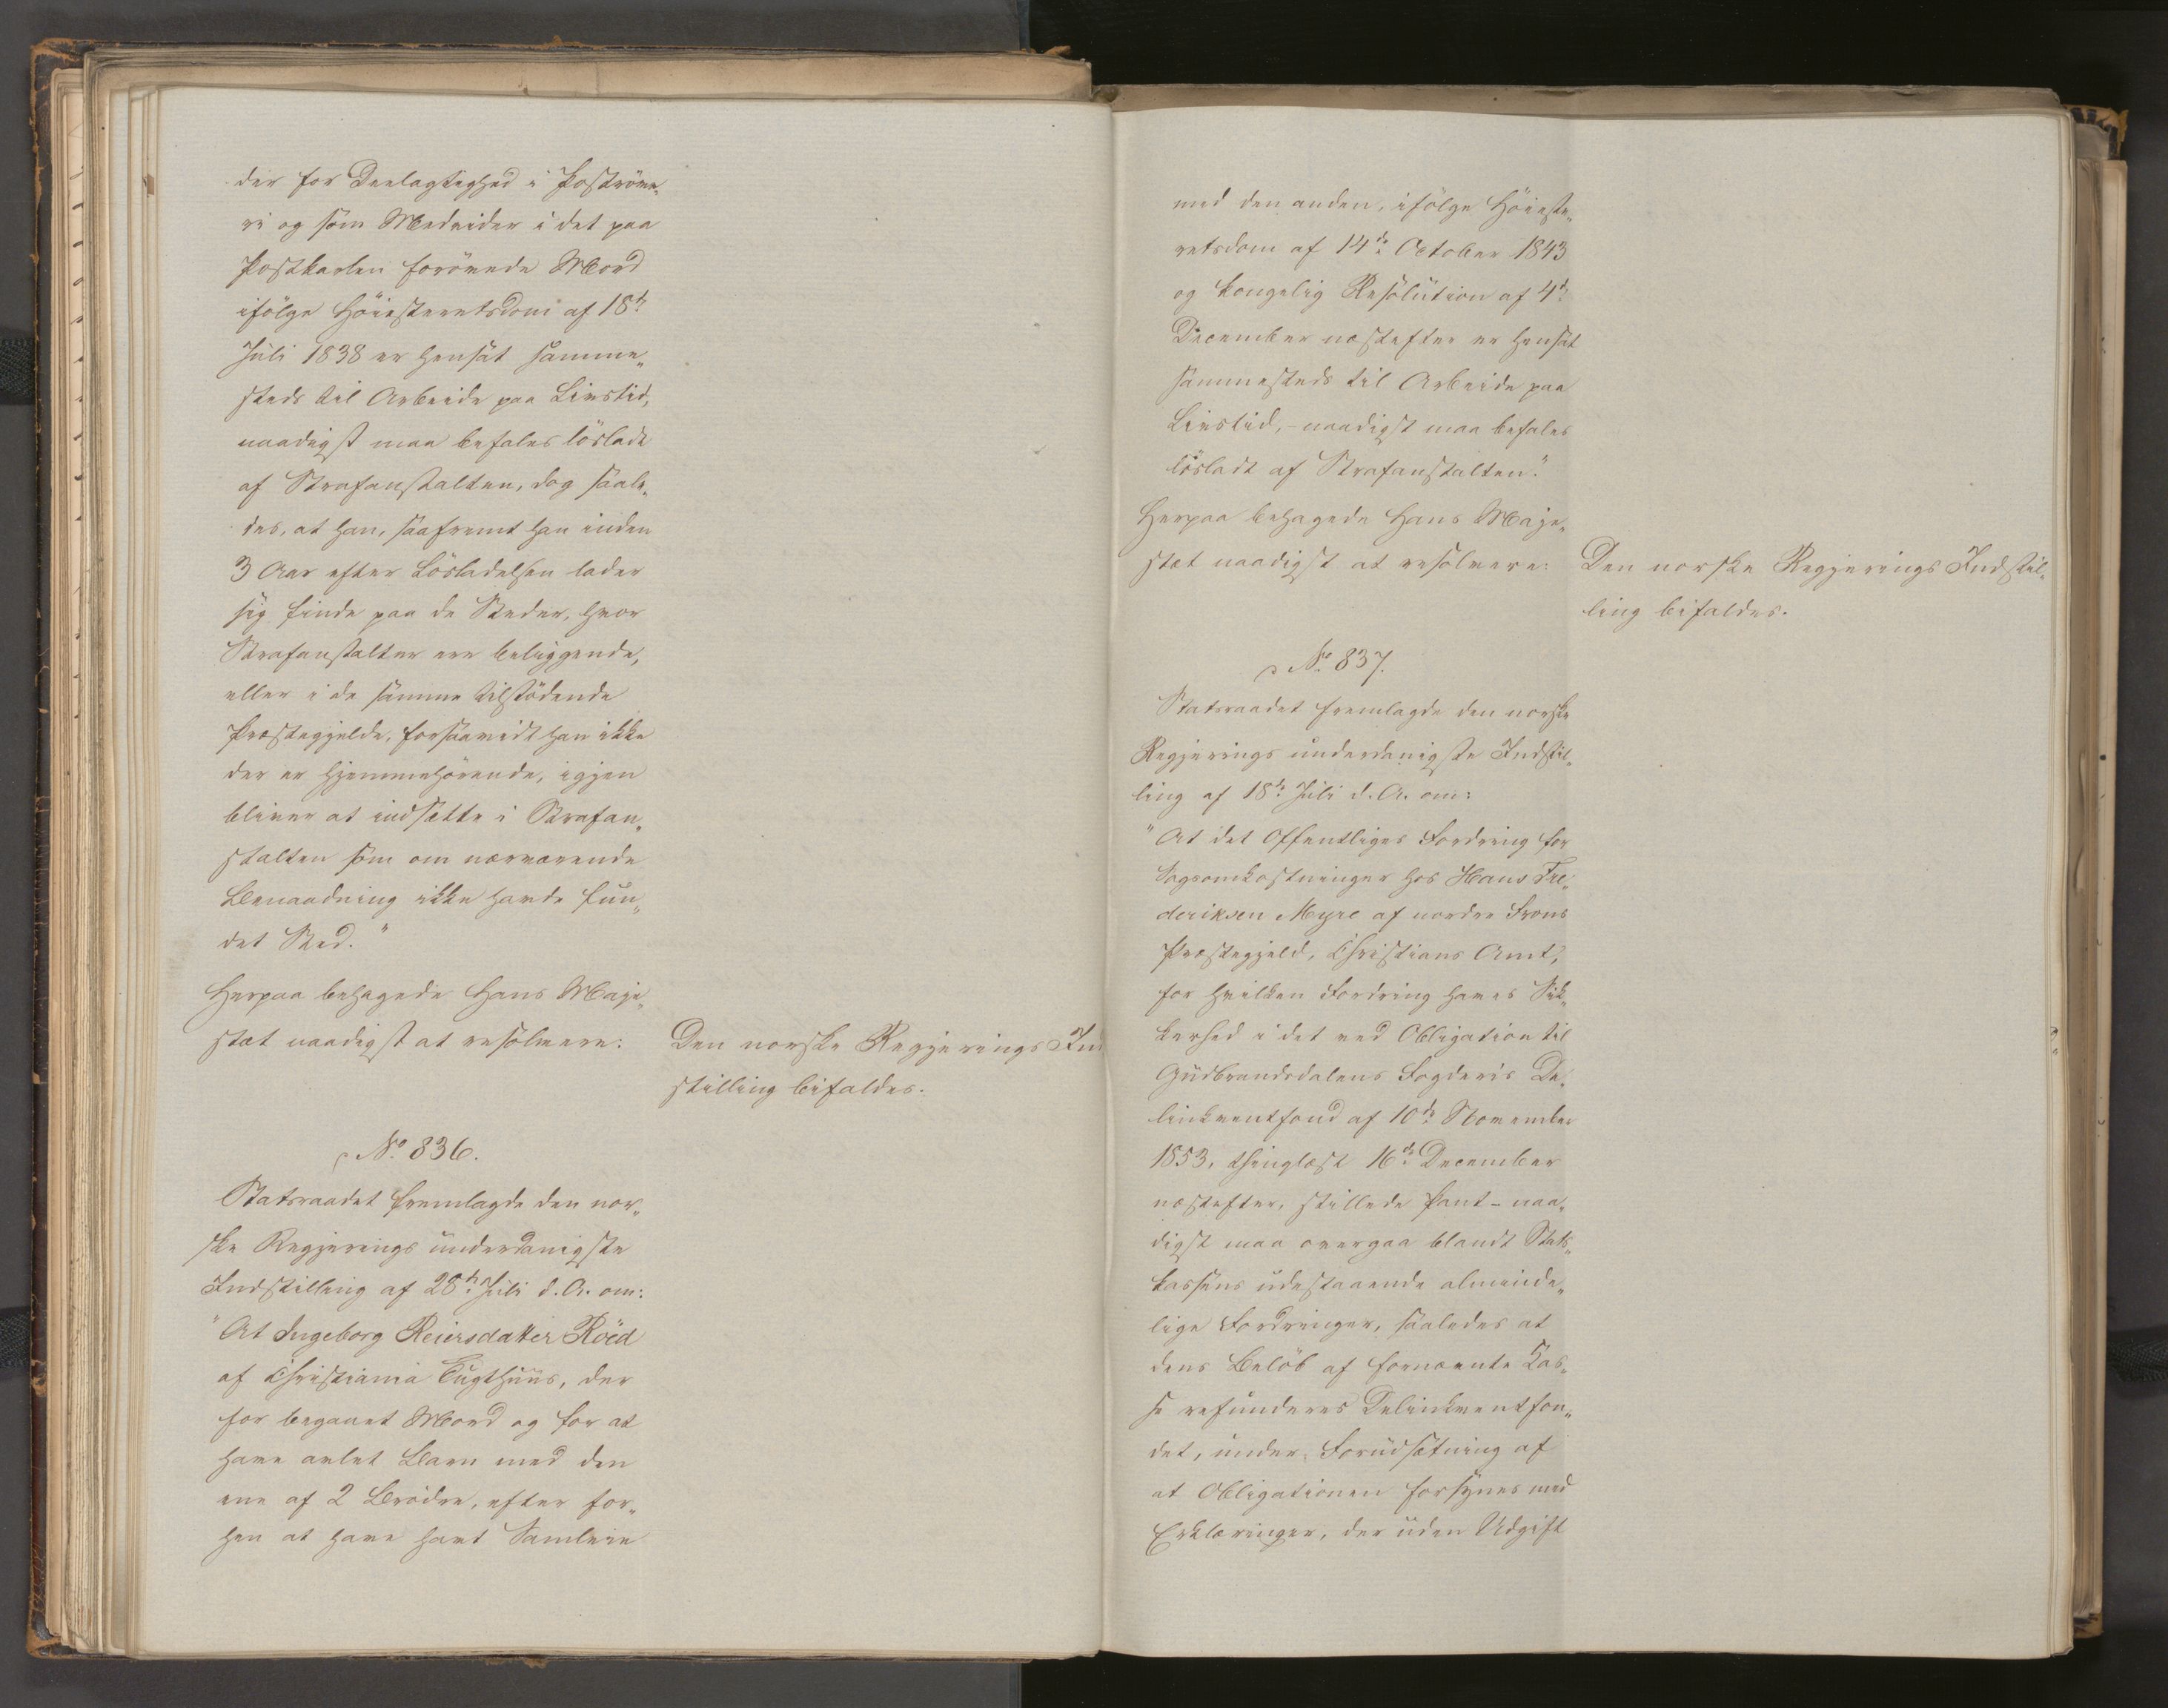 der for Deelagtighed i Postrøve„
ri og som Medvider i det paa
Postkarlen forøvede Mord
ifölge Höiesteretsdom af 18de
Juli 1838 er hensat samme„
steds til Arbeide paa Livstid,
naadigst maa befales löslade
af Strafanstalten, dog saale„
des, at han, saafremt han inden
3 Aar efter Lösladelsen lader
sig finde paa de Steder, hvor
Strafanstalter ere beliggende,
eller i de samme tilstödende
Præstegjelde, forsaavidt han ikke
der er hjemmehörende, igjen
bliver at indsætte i Strafan„
stalten som om nærværende
Benaadning ikke havde fun„
det Sted."
Herpaa behagede Hans Maje„
stæt naadigst at resolvere:
Den norske Regjerings Ind
stilling bifaldes.
No. 836.
Statsraadet fremlagde den nor„
ske Regjerings underdanigste
Indstilling af 28de Juli d. A. om:
"At Ingeborg Reiersdatter Röed
af Christiania Tugthuus, der
for begaaet Mord og for at
have avlet Barn med den
ene af 2 Brödre, efter for„
hen at have havt Samleie
med den anden, ifölge Höieste„
retsdom af 14de October 1843
og kongelig Resolution af 4de
December næstefter er hensat
sammesteds til Arbeide paa
Livstid, - naadigst maa befales
lösladt af Strafanstalten."
Herpaa behagede Hans Maje„
stæt naadigst at resolvere:
Den norske Regjerings Indstil„
ling bifaldes.
No. 837.
Statsraadet fremlagde den norske
Regjerings underdanigste Indstil„
ling af 18de Juli d. A. om:
"At det Offentliges Fordring for
Sagsomkostninger hos Hans Fre„
deriksen Myre af nordre Frons
Præstegjeld, Christians Amt,
for hvilken Fordring haves Sik„
kerhed i det ved Obligation til
Gudbrandsdalens Fogderis De„
linkventfond af 10de November
1853, thinglæst 16de December
næstefter, stillede Pant - naa„
digst maa overgaa blandt Stats„
kassens udestaaende alminde„
lige Fordringer, saaledes at
dens Belöb af fornævnte Kas„
se refunderes Delinkventfon„
det, under Forudsætning af
at Obligationen forsynes med
Erklæringer, der uden Udgift